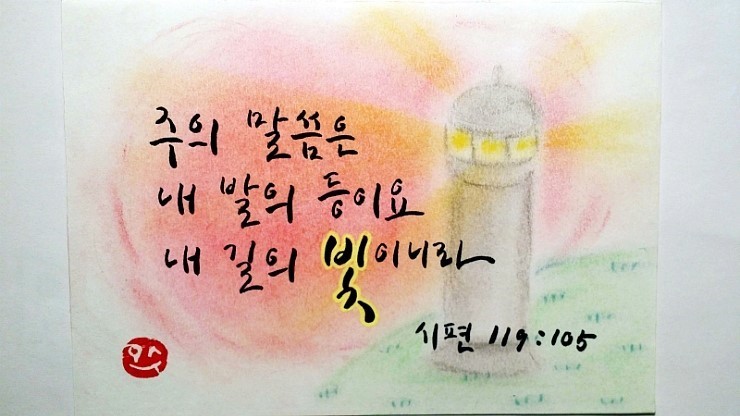 주의 말씀은
내 발의 등이요
내 길의 빛이니라
시편 119:105